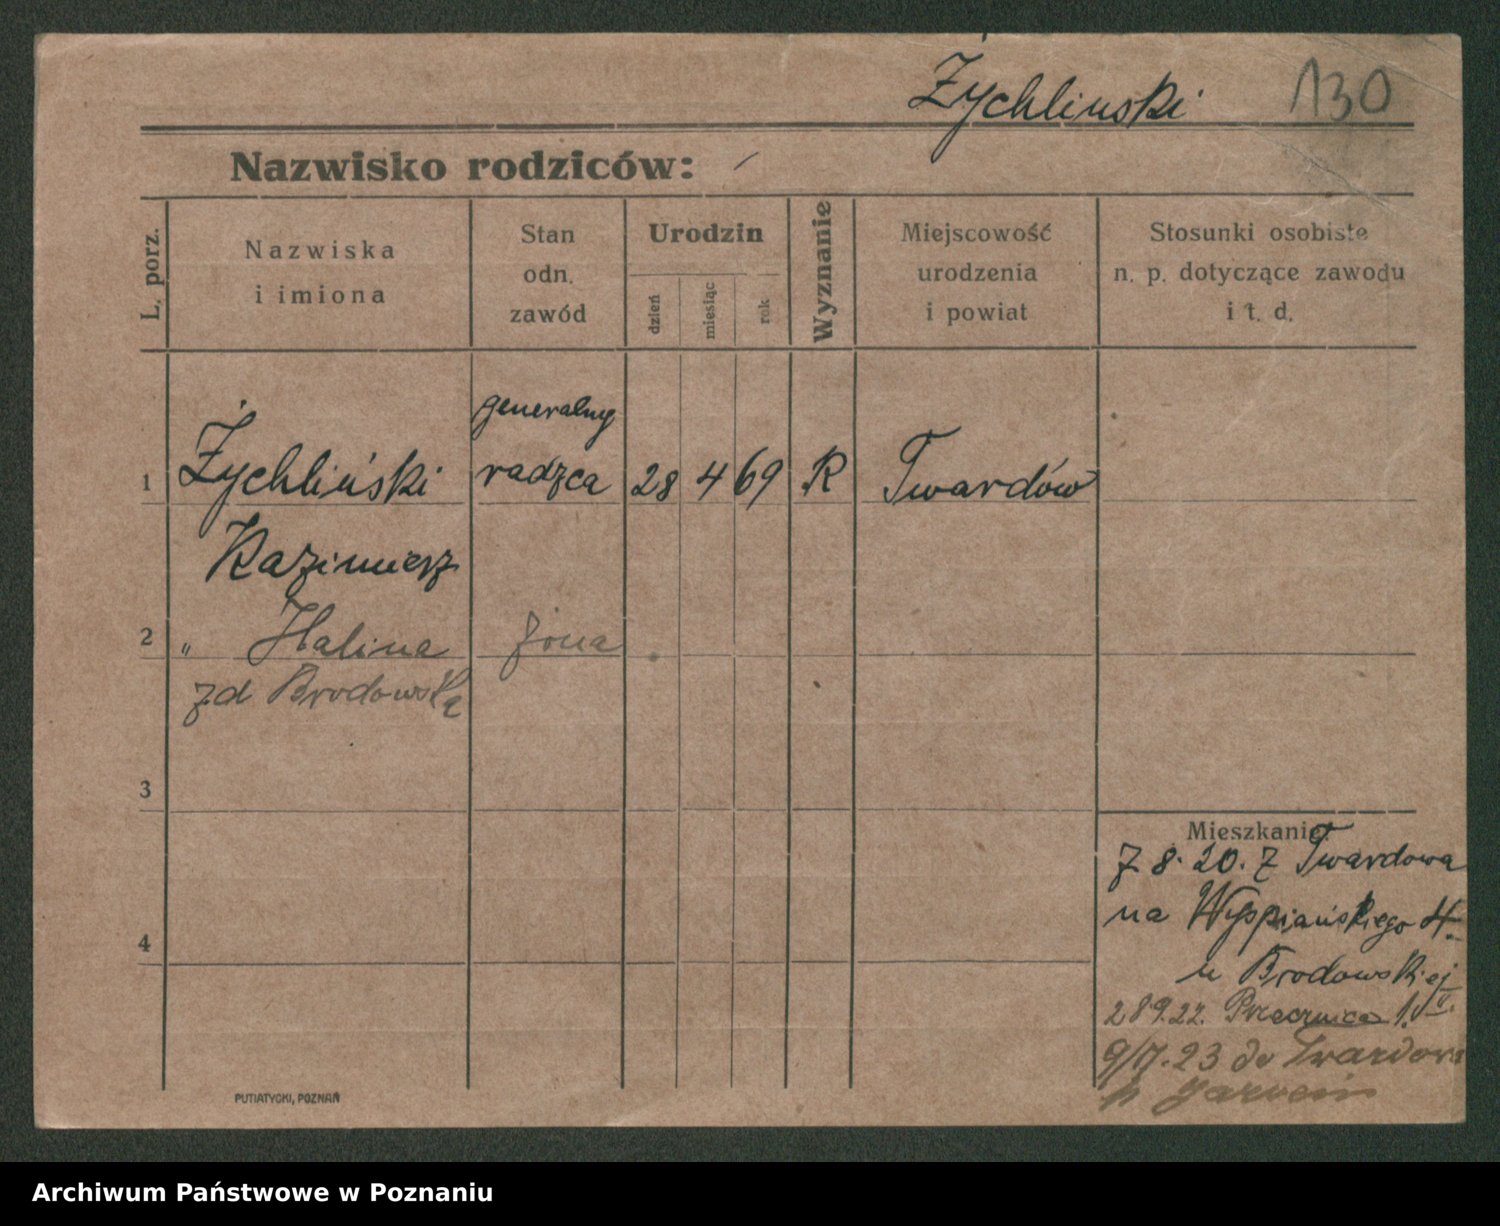 Żychlinski 130
Nazwisko rodziców:
L. porz.
Nazwiska
i imiona
Stan
odn.
zawód
Urodzin
dzień
miesiąc
rok
Wyznanie
Miejscowość
urodzenia
i powiat
Stosunki osobiste
n. p. dotyczące zawodu
i t. d.
generalny
1 Żychliński radzca 28 4 69 R Twardów
Kazimierz
2 " Halina żona
zd Brodowską
3
4
Mieszkanie:
7 8. 20. z Twardowa
na Wyspiańskiego
u Brodowskiej
28 9. 22. Przecznica 1. II.
9/7. 23 do Twardowa
p. Jarocin
PUTIATYCKI, POZNAŃ
Archiwum Państwowe w Poznaniu